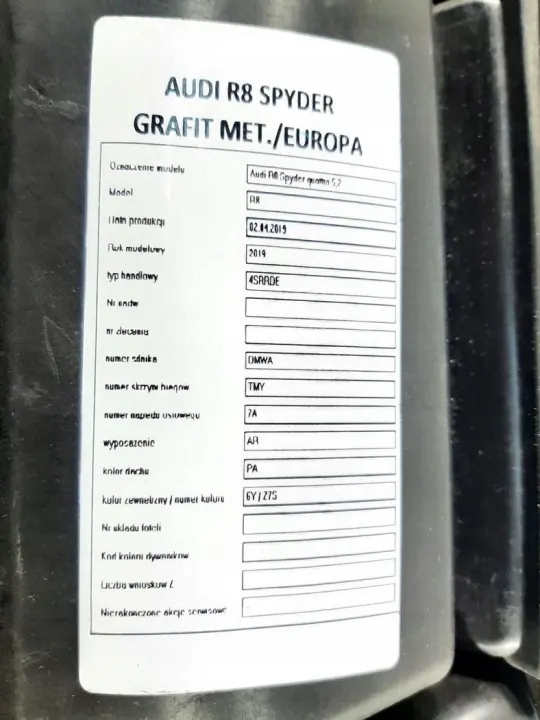 AUDI R8 SPYDER
GRAFIT MET./EUROPA
Oznaczenie modelu Audi R8 Spyder quattro 5,2
Model R8
Data produkcji 02.04.2019
Rok modelowy 2019
typ handlowy 4SRRDE
Nr
nr zlecenia
numer silnika DMWA
numer skrzyni biegów TMY
numer napędu osiowego 7A
wyposażenie AR
kolor dachu PA
kolor zewnętrzny / numer koloru 6Y / Z7S
Nr układu foteli
Kod koloru dywaników
Liczba wniosków Z
Niezakończone akcje serwisowe